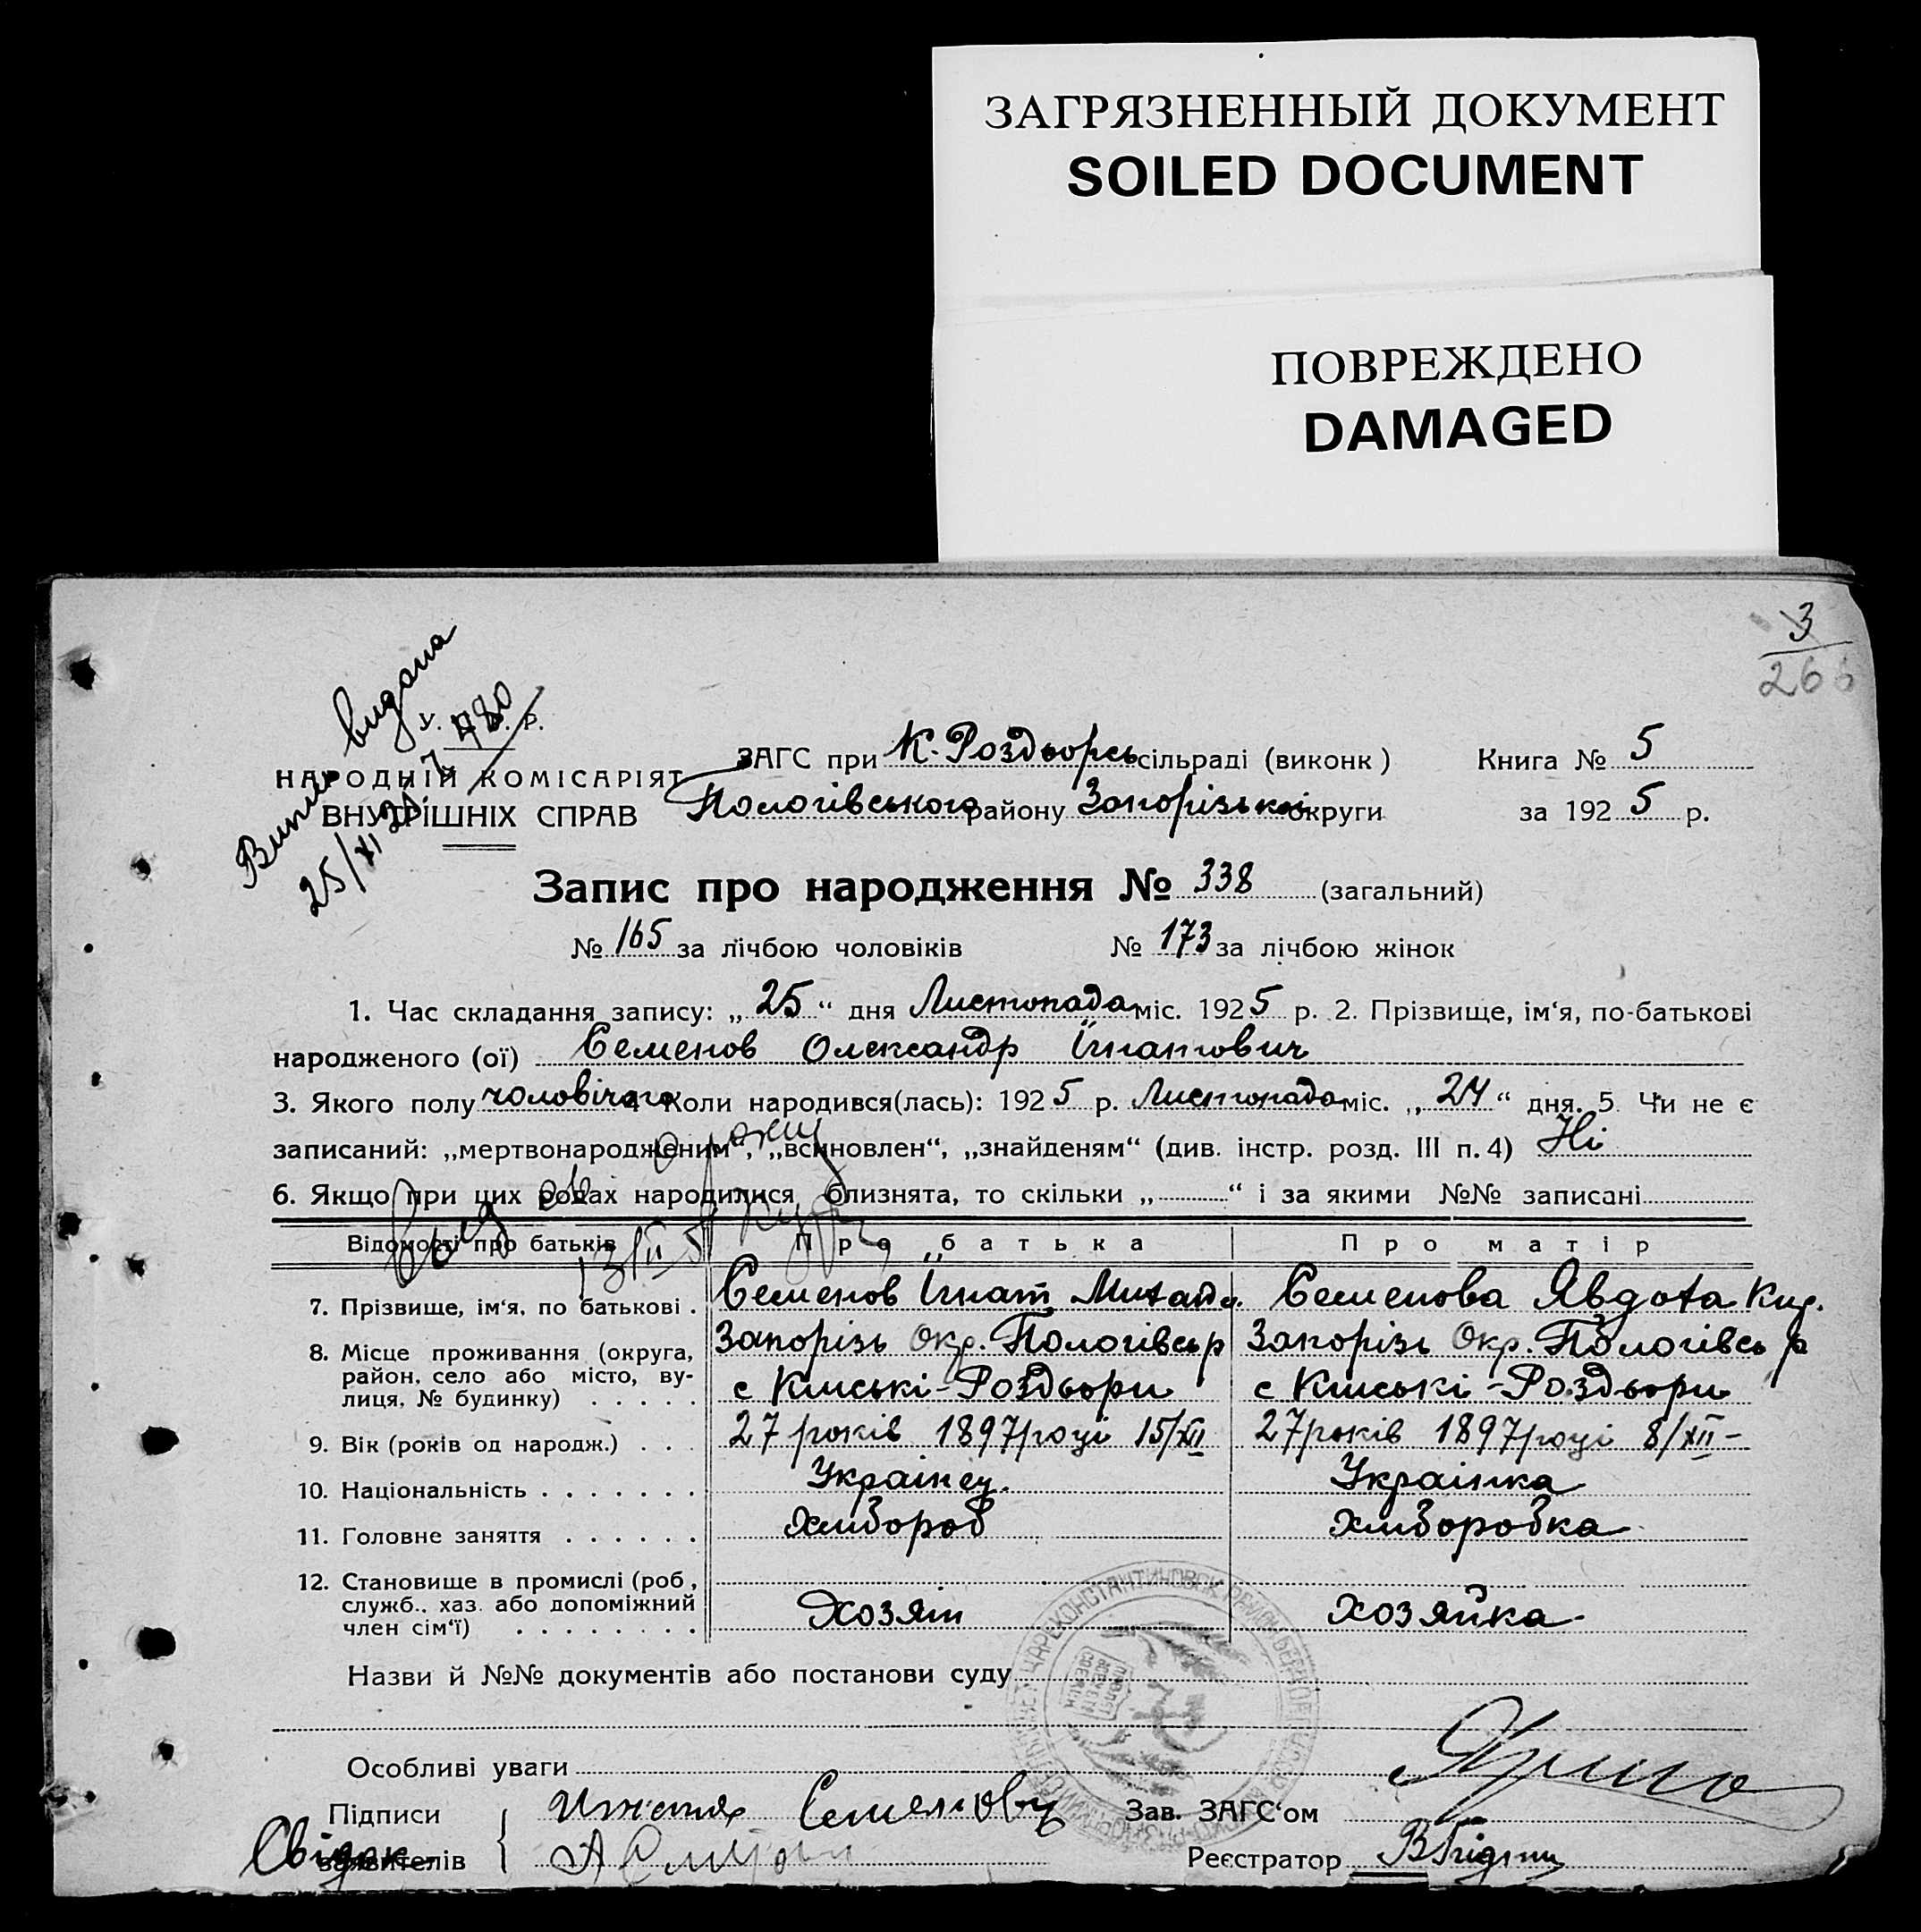 ЗАГРЯЗНЕННЫЙ ДОКУМЕНТ
SOILED DOCUMENT
ПОВРЕЖДЕНО
DAMAGED
3
266
видана
У. Р.
НАРОДНІЙ КОМІСАРІЯТ
ВНУТРІШНІХ СПРАВ
25/XI
ЗАГС при К. Роздорсь сільраді (виконк) Книга № 5
Пологівського району Запорізької округи за 1925 р.
Запис про народження № 338 (загальний)
№ 165 за лічбою чоловіків № 173 за лічбою жінок
1. Час складання запису: „25“ дня Листопада міс. 1925 р. 2. Прізвище, ім‘я, по-батькові
народженого (ої) Семенов Олександр Ігнатович
3. Якого полу чоловічого 4 Коли народився(лась): 1925 р. Листопада міс. „24“ дня. 5. Чи не є
записаний: „мертвонародженим“, „всиновлен“, „знайденям“ (див. інстр. розд. III п. 4) Ні
6. Якщо при цих родах народилися близнята, то скільки „ “ і за якими №№ записані
Відомості про батьків Про батька Про матір
7. Прізвище, ім‘я, по батькові . Семенов Ігнат Михайл. Семенова Явдота Кир.
8. Місце проживання (округа, Запорізь Окр. Пологівсь р Запорізь Окр. Пологівсь р
район, село або місто, ву-
лиця, № будинку) . . . . . с Кінські-Роздори с Кінські-Роздори
9. Вік (років од народж.) . . . 27 років 1897 році 15/XII 27 років 1897 році 8/XII-
10. Національність . . . . . . . Українец. Українка
11. Головне заняття . . . . . . Хлибороб Хлиборобка
12. Становище в промислі (роб.,
служб., хаз. або допоміжний Хозяін Хозяйка
член сім‘ї) . . . . . . . .
Назви й №№ документів або постанови суду
Особливі уваги
Підписи Семенов Зав. ЗАГС‘ом
Свідок заявителів Реєстратор